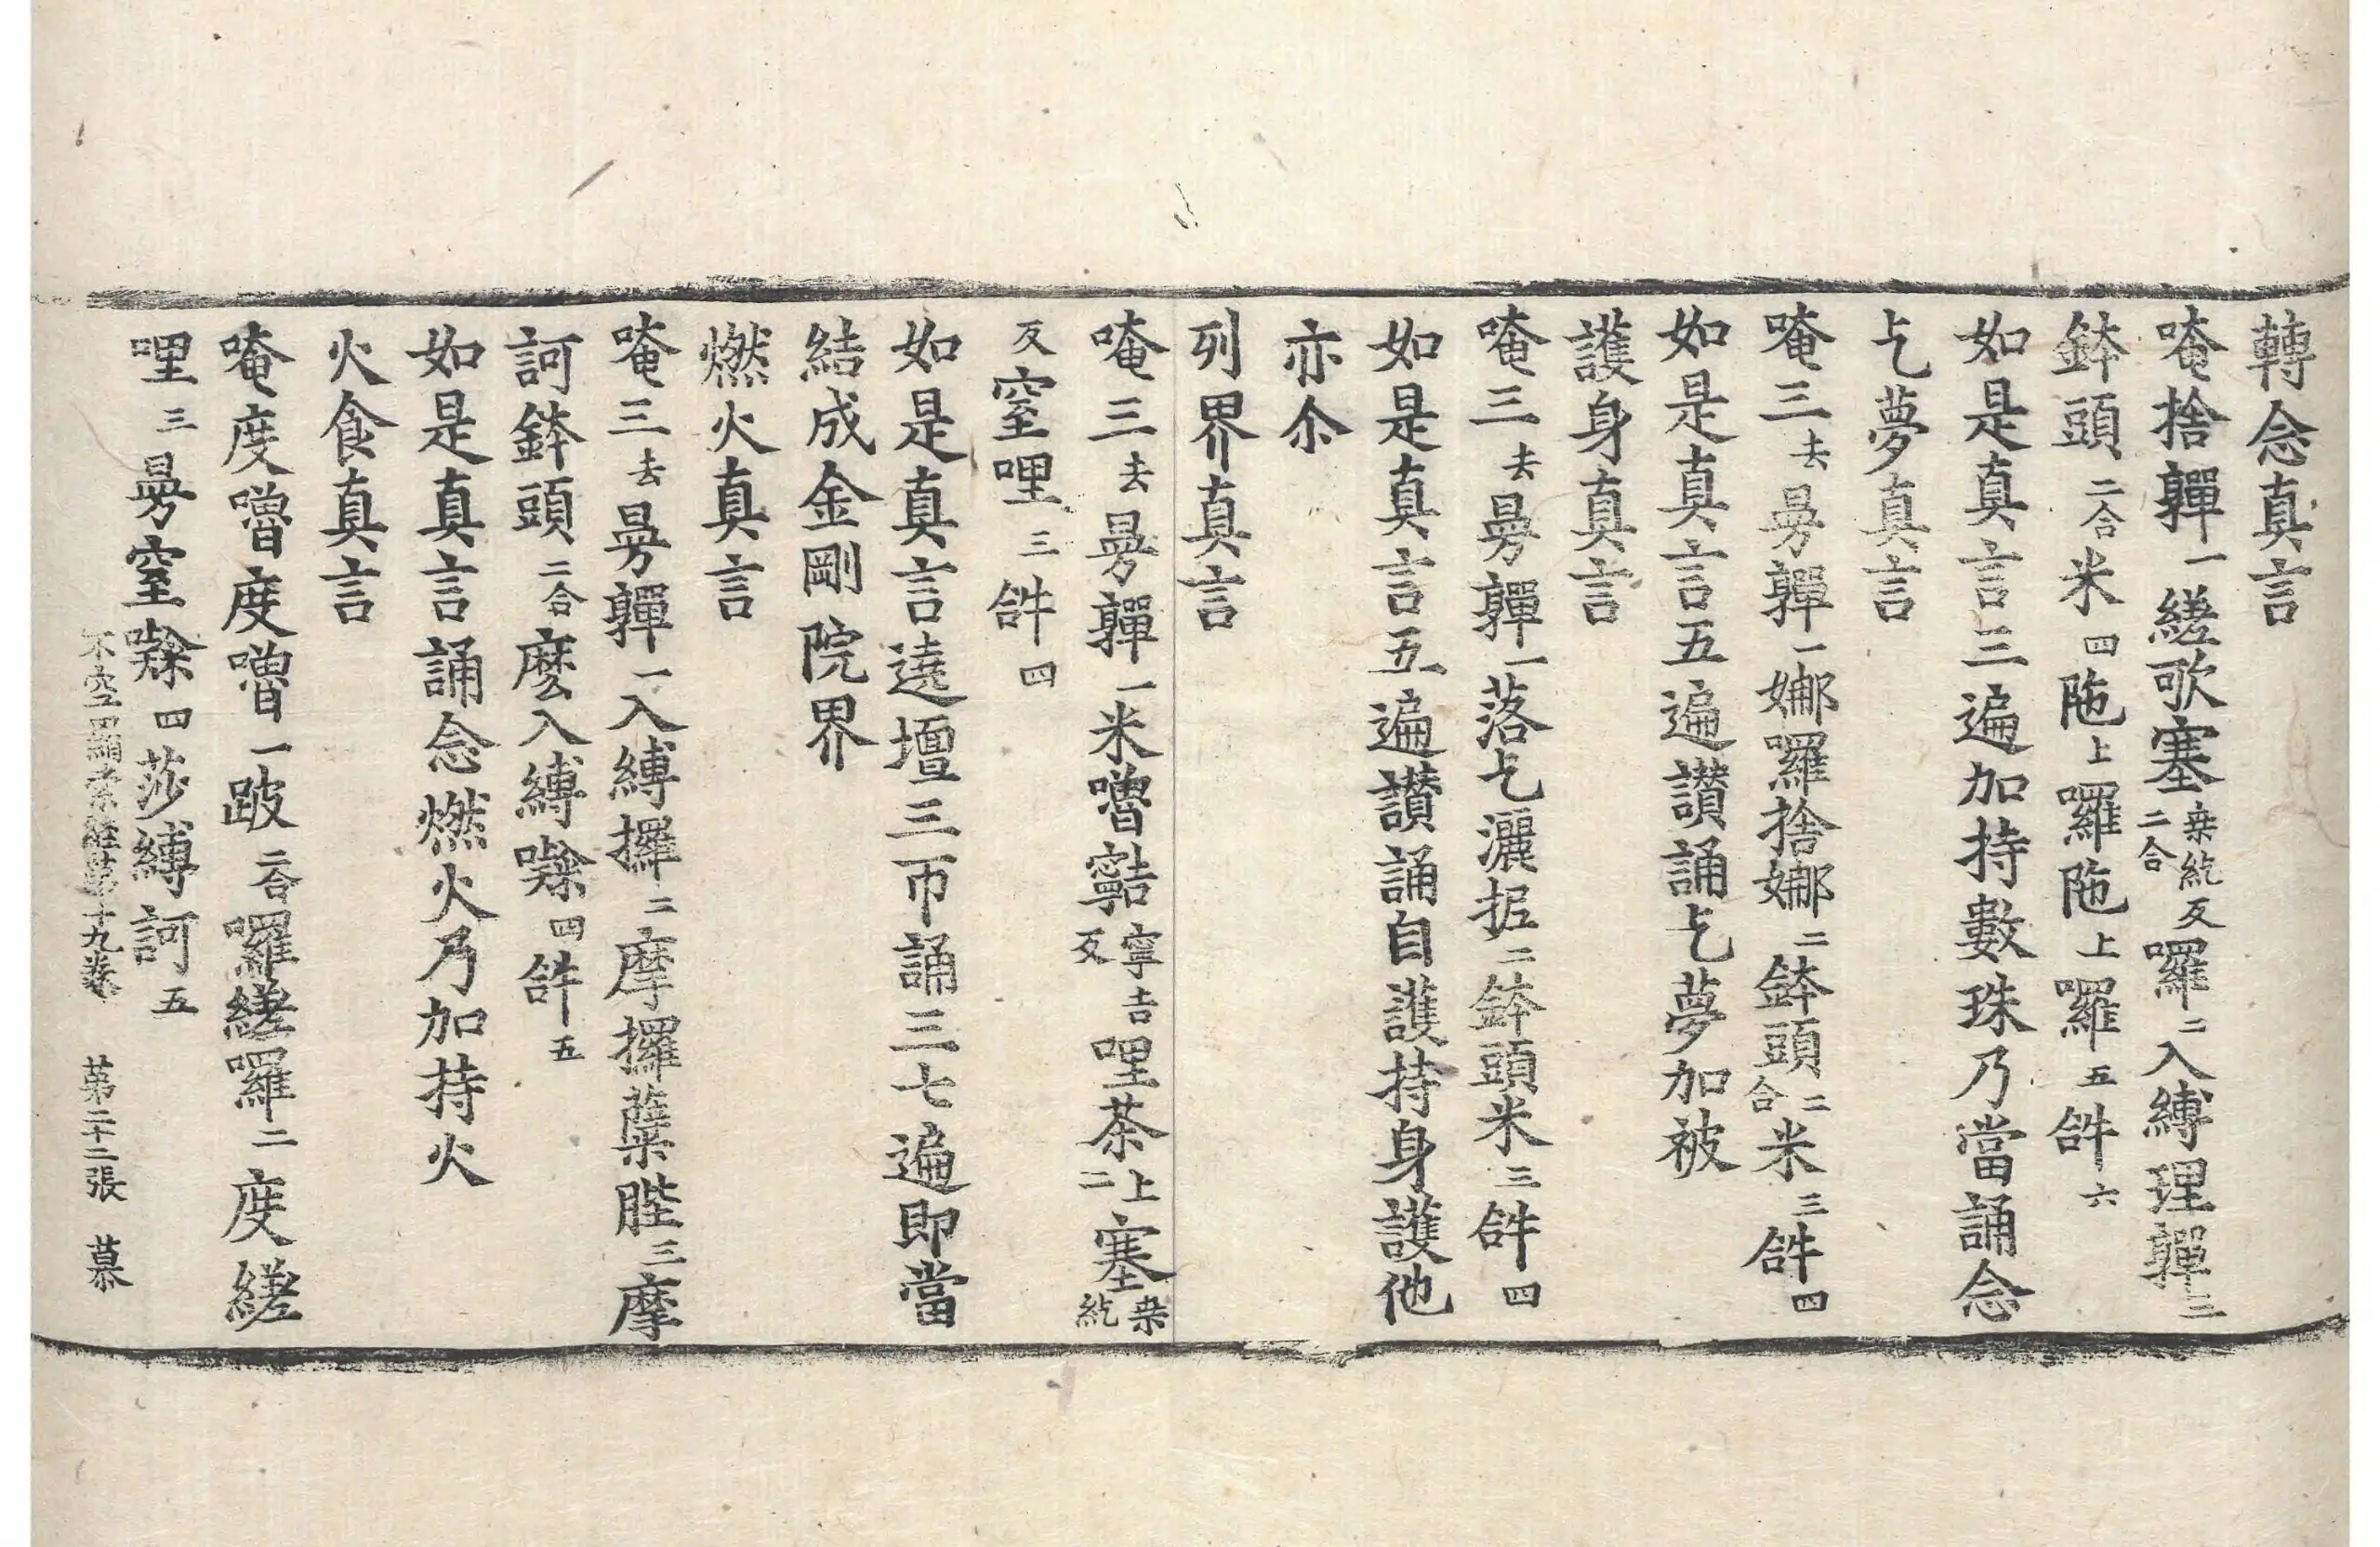 轉念真言
唵捨嚲一縒歌塞桒紇反二合囉二入縛理嚲三
鉢頭二合米四陁上囉陁上囉五𤙖六
如是真言三遍加持數珠乃當誦念
乞夢真言
唵三去曼嚲一娜囉捨娜二鉢頭二合米三𤙖四
如是真言五遍讚誦乞夢加被
護身真言
唵三去曼嚲一落乞灑抳二鉢頭米三𤙖四
如是真言五遍讚誦自護持身護他
亦尒
列界真言
唵三去曼嚲一米嚕𪘨寧吉反哩茶上二塞桒紇
反窒哩三𤙖四
如是真言遶壇三帀誦三七遍即當
結成金剛院界
燃火真言
唵三去曼嚲一入縛攞二摩攞蘗陛三摩
訶鉢頭二合麽入縛㘑四𤙖五
如是真言誦念燃火乃加持火
火食真言
唵度嚕度嚕一跛二合囉縒囉二度縒
哩三曼窒㘑四莎縛訶五
不空羂索經第十九卷 第二十二張 慕